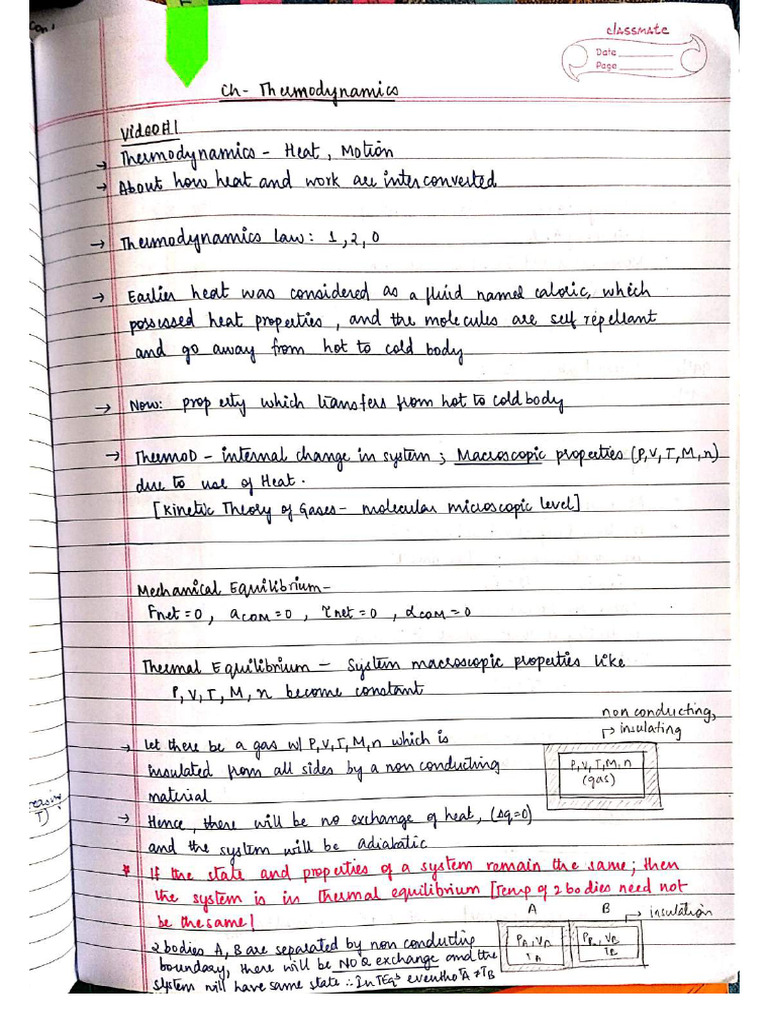 classmate
Date
Page
Ch- Thermodynamics
Video#1
→ Thermodynamics - Heat, Motion
→ About how heat and work are interconverted
→ Thermodynamics law: 1, 2, 0
→ Earlier heat was considered as a fluid named caloric, which
possessed heat properties, and the molecules are self repellant
and go away from hot to cold body
→ Now: property which transfers from hot to cold body
→ ThermoD - internal change in system; Macroscopic properties (P,V,T,M,n)
due to use of Heat.
[Kinetic Theory of Gases - molecular microscopic level]
Mechanical Equilibrium-
Fnet=0, aCOM=0, τnet=0, αCOM=0
Thermal Equilibrium - System macroscopic properties like
P,V,T,M,n become constant
non conducting,
→ insulating
→ let there be a gas w/ P,V,T,M,n which is
insulated from all sides by a non conducting
material
P,V,T,M,n
(gas)
→ Hence, there will be no exchange of heat, (Δq=0)
and the system will be adiabatic
* If the state and properties of a system remain the same; then
the system is in Thermal equilibrium [Temp of 2 bodies need not
be the same]
A B → insulation
PA, VA PB, VB
TA TB
2 bodies A, B are separated by non conducting
boundary, there will be NO Q exchange and the
system will have same state ∴ In TEqb eventho TA≠TB